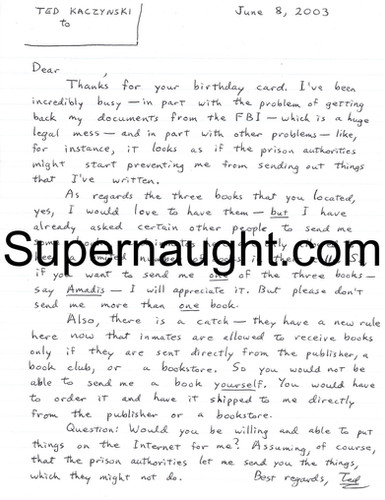 TED KACZYNSKI
to
June 8, 2003
Dear ,
Thanks for your birthday card. I've been
incredibly busy — in part with the problem of getting
back my documents from the FBI — which is a huge
legal mess — and in part with other problems — like,
for instance, it looks as if the prison authorities
might start preventing me from sending out things
that I've written.
As regards the three books that you located,
yes, I would love to have them — but I have
already asked certain other people to send me
Supernaught.com
if you want to send me one of the three books —
say Amadis — I will appreciate it. But please don't
send me more than one book.
Also, there is a catch — they have a new rule
here now that inmates are allowed to receive books
only if they are sent directly from the publisher, a
book club, or a bookstore. So you would not be
able to send me a book yourself. You would have
to order it and have it shipped to me directly
from the publisher or a bookstore.
Question: Would you be willing and able to put
things on the Internet for me? Assuming, of course,
that the prison authorities let me send you the things,
which they might not do. Best regards, Ted